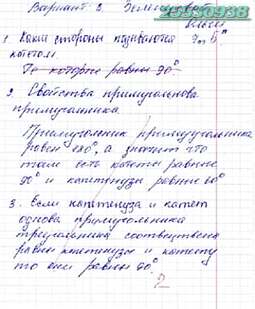 Вариант 2
20336938
1. Какие стороны называются
катетом
Те которые равны 90°
2. Свойства прямоугольнова
примугольника.
Примоугольник
равен 180°, а значит что
там есть катеты равные
90° и гипатенузы равные 60°
3. Если капетенуза и катет
однова примугольника
треугольника соответствена
равны капетенузы и катету
то они равны 90°
2